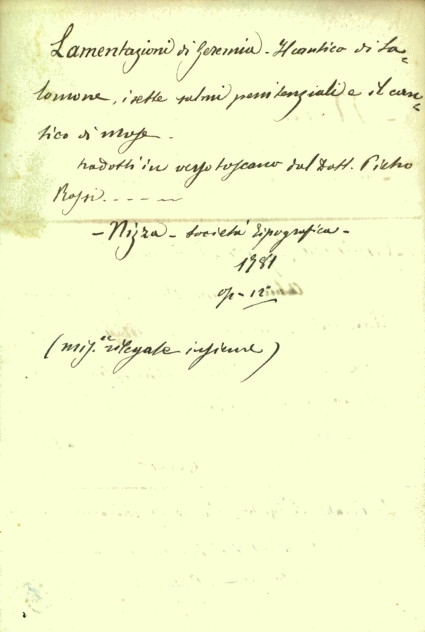 Lamentazioni di Geremia - Il cantico di Sa=
lomone, i sette salmi penitenziali e il can=
tico di Mosè -
tradotti in verso toscano dal Dott. Pietro
Rossi. - - - -
- Nizza - Società Tipografica -
1781
op - 12°
rilegate insieme)